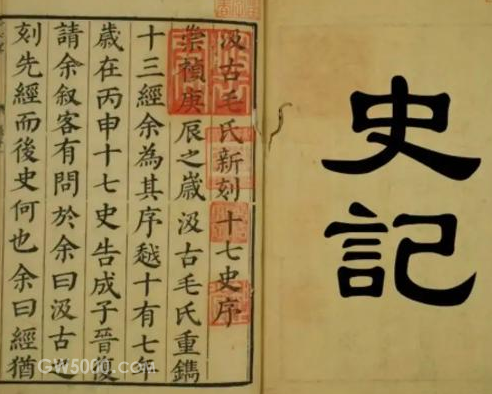 史記
汲古毛氏新刻十七史序
崇禎庚辰之歲汲古毛氏重鐫
十三經余為其序越十有七年
歲在丙申十七史告成子晉復
請余叙客有問於余曰汲古之
刻先經而後史何也余曰經猶
GW5000.com